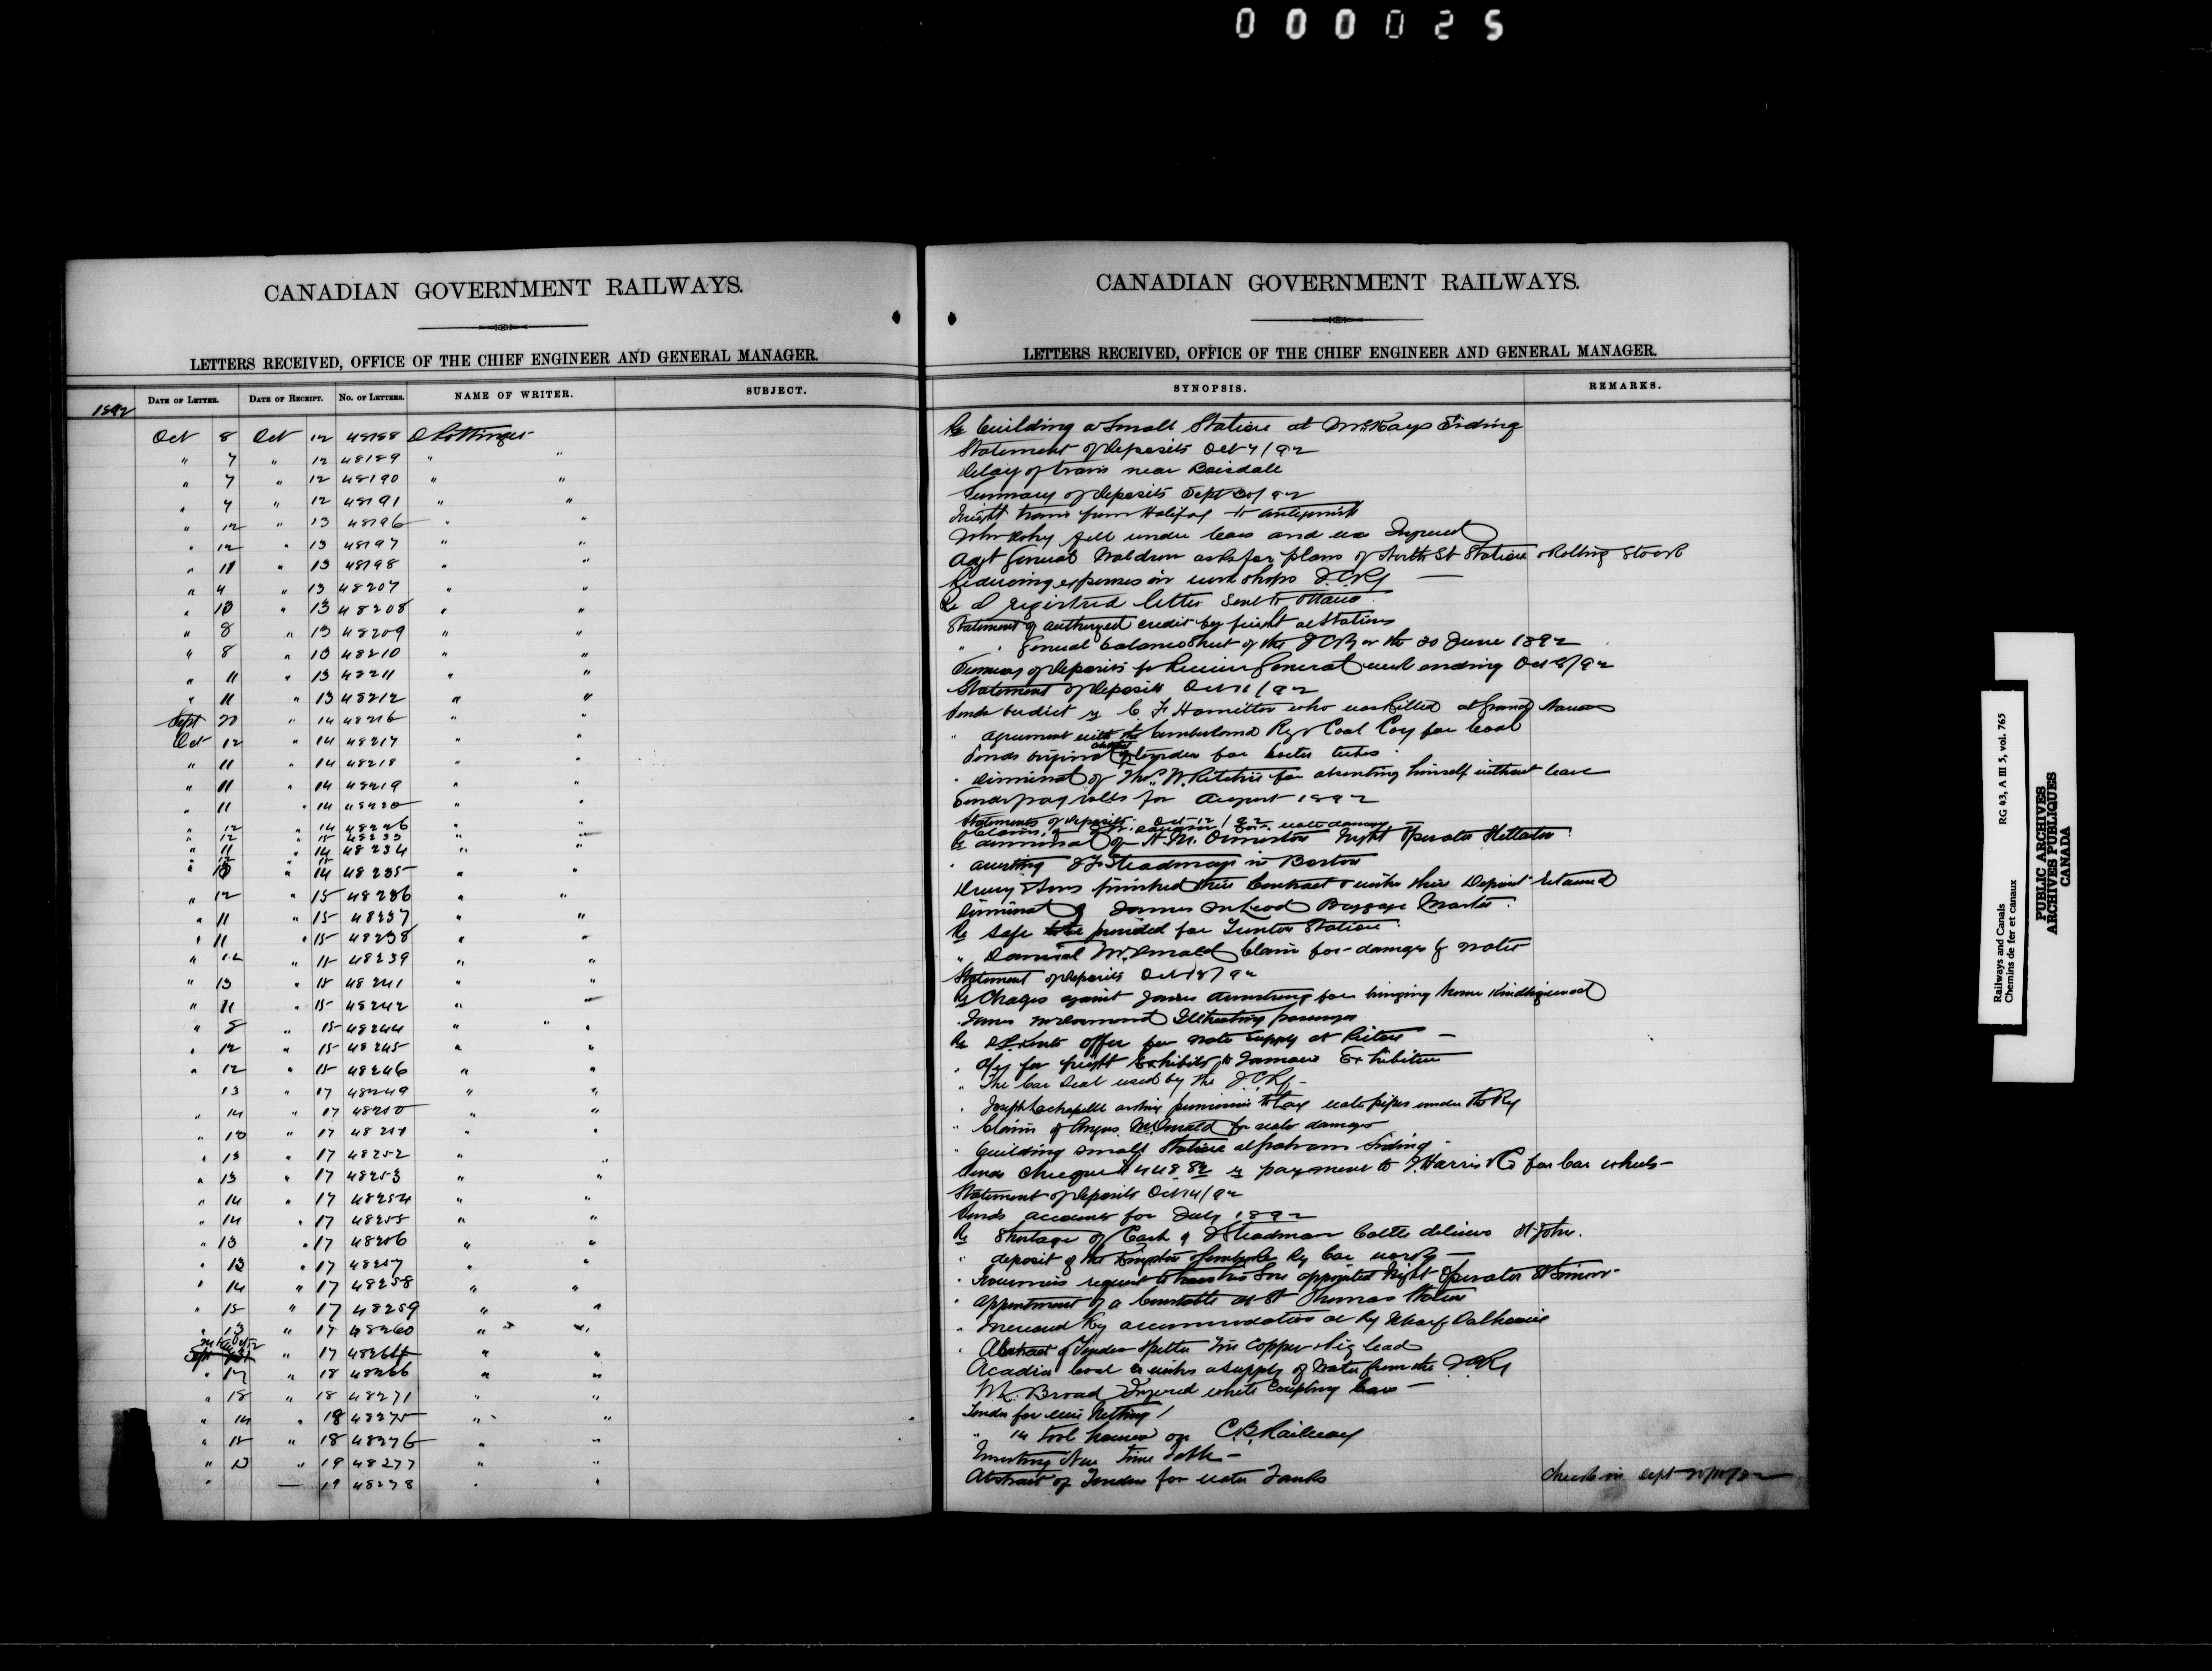 000025
CANADIAN GOVERNMENT RAILWAYS.
LETTERS RECEIVED, OFFICE OF THE CHIEF ENGINEER AND GENERAL MANAGER.
1892 DATE OF LETTER. DATE OF RECEIPT. NO. OF LETTERS. NAME OF WRITER. SUBJECT.
Oct 8 Oct 12 48188 D Pottinger
" 7 " 12 48189 " "
" 7 " 12 48190 " "
" 7 " 12 48191 " "
" 12 " 13 48196 " "
" 12 " 13 48197 " "
" 11 " 13 48198 " "
" 4 " 13 48207 " "
" 10 " 13 48208 " "
" 8 " 13 48209 " "
" 8 " 13 48210 " "
" 11 " 13 48211 " "
" 11 " 13 48212 " "
Sept 20 " 14 48216 " "
Oct 12 " 14 48217 " "
" 11 " 14 48218 " "
" 11 " 14 48219 " "
" 11 " 14 48220 " "
" 12 " 14 48226 " "
" 12 " 15 48233 " "
" 11 " 14 48234 " "
" 14 48235 " "
" 12 " 15 48236 " "
" 11 " 15 48237 " "
" 11 " 15 48238 " "
" 12 " 15 48239 " "
" 13 " 15 48241 " "
" 11 " 15 48242 " "
" 8 " 15 48244 " "
" 12 " 15 48245 " "
" 12 " 15 48246 " "
13 " 17 48249 " "
" 14 " 17 48250 " "
" 13 " 17 48251 " "
" 13 " 17 48252 " "
" 13 " 17 48253 " "
" 14 " 17 48254 " "
" 14 " 17 48255 " "
" 13 " 17 48256 " "
" 13 " 17 48257 " "
" 14 " 17 48258 " "
" 15 " 17 48259 " "
" 13 " 17 48260 " "
Sept " 17 48264 " "
" 17 " 18 48266 " "
" 18 " 18 48271 " "
" 14 " 18 48275 " "
" 15 " 18 48276 " "
" 13 " 19 48277 " "
" — 19 48278 " "
CANADIAN GOVERNMENT RAILWAYS.
LETTERS RECEIVED, OFFICE OF THE CHIEF ENGINEER AND GENERAL MANAGER.
SYNOPSIS. REMARKS.
Re building a Small Station at McKays Siding
Statement of deposits Oct 7/92
Delay of train near Boisdale
Summary of deposits Sept 30/92
Freight train from Halifax to Antigonish
John fell under cars and was Injured
Adjt General Waldron asks for plans of North St Station & Rolling Stock
Reducing expenses in work shops I.C.Ry —
Re a registered letter sent to Ottawa
Statement of authorized credit for freight at Stations
" " General balance Sheet of the I C Ry on the 30 June 1892
Summary of deposits to Receiver General week ending Oct 8/92
Statement of deposits Oct 11/92
Sends verdict re C F Hamilton who was killed at Grand Narrows
" agreement with the Cumberland Ry & Coal Coy for Coal
Sends original abstract of tender for boiler tubes
" dismissal of Thos. W. Ritchie for absenting himself without leave
Sends pay rolls for August 1892
Statements of deposits Oct 12/92
Claims of for water damage
Re dismissal of H. M. Ormiston Night Operator
" arresting J F Steadman in Boston
Drury & Sons finished their Contract & wishes their Deposit returned
Dismissal of James McLeod Baggage Master
Re safe to be provided for Truro Station
" Daniel McDonald Claim for damage by water
Statement of deposits Oct 13/92
Re Charges against James Armstrong for bringing home Kindlingwood
" James McDormond Illtreating passenger
Re offer for water supply at Pictou —
" for freight Exhibits to Jamaica Exhibition
" The Car Seal used by the I.C.Ry —
" Joseph Lachapelle asking permission to lay water pipes under the Ry
" Claim of Angus McDonald for water damages
" building small Station at Grahams Siding
Sends cheque $448.82 re payment to J. Harris & Co for Car wheels —
Statement of deposits Oct 14/92
Sends accounts for July 1892
Re Shortage of Cash of J Steadman St John.
" deposit of the Kingston & Pembroke Ry Car works —
" request to have his Son appointed Night Operator St Simon
" appointment of a Constable at St Thomas Station
" Increased Ry accommodation at Ry Wharf Dalhousie
" Abstract of Tender Spelter Tin Copper & Pig lead
Acadia Coal Co wishes a supply of Water from the I C Ry
W. Broad Injured while Coupling Cars —
Tender for wire Netting
" " 14 tool houses on C.B. Railway
New Time Table —
Abstract of Tenders for water Tanks
RG 43, A III 5, vol. 765
Railways and Canals
Chemins de fer et canaux
PUBLIC ARCHIVES
ARCHIVES PUBLIQUES
CANADA